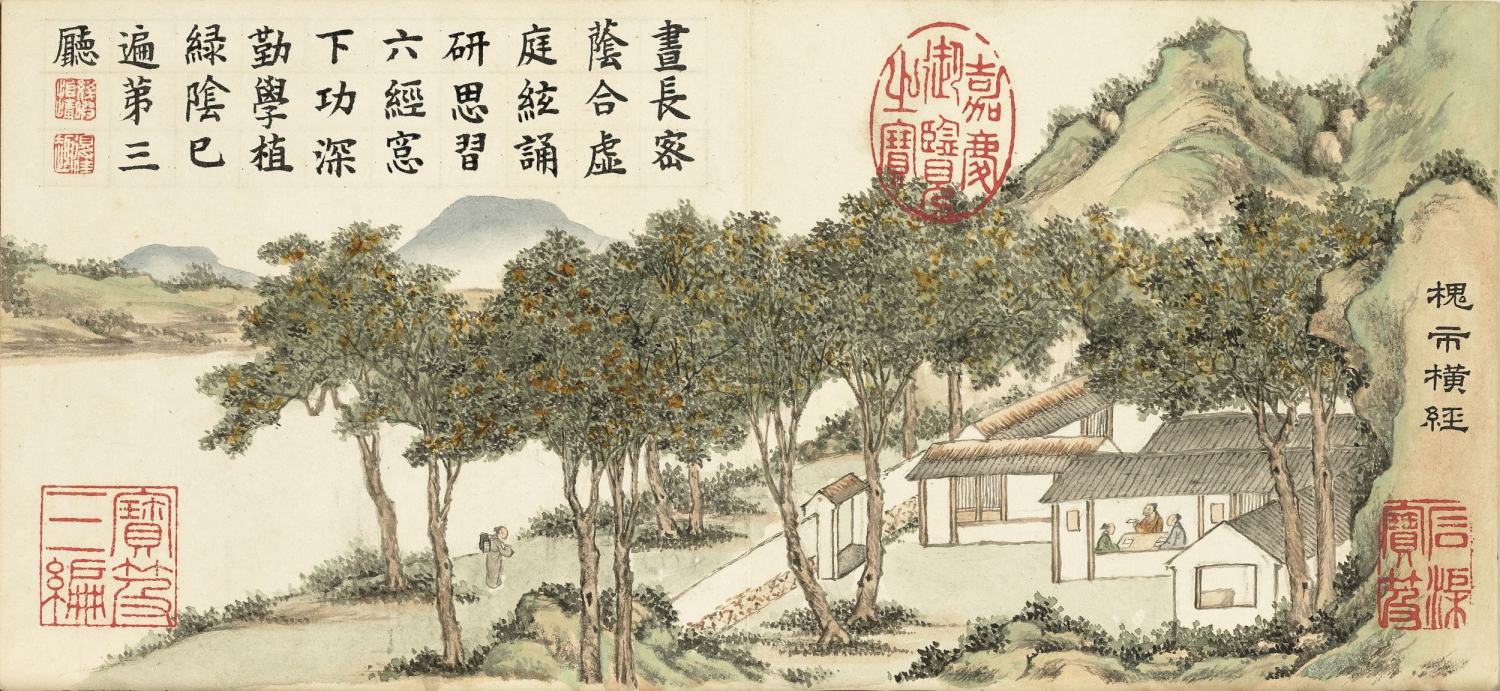 槐市橫經
石渠
寶笈
嘉慶
御覽
之寶
晝長密
蔭合虛
庭絃誦
研思習
六經窓
下功深
勤學植
緑陰已
遍苐三
廳
寶笈
三編